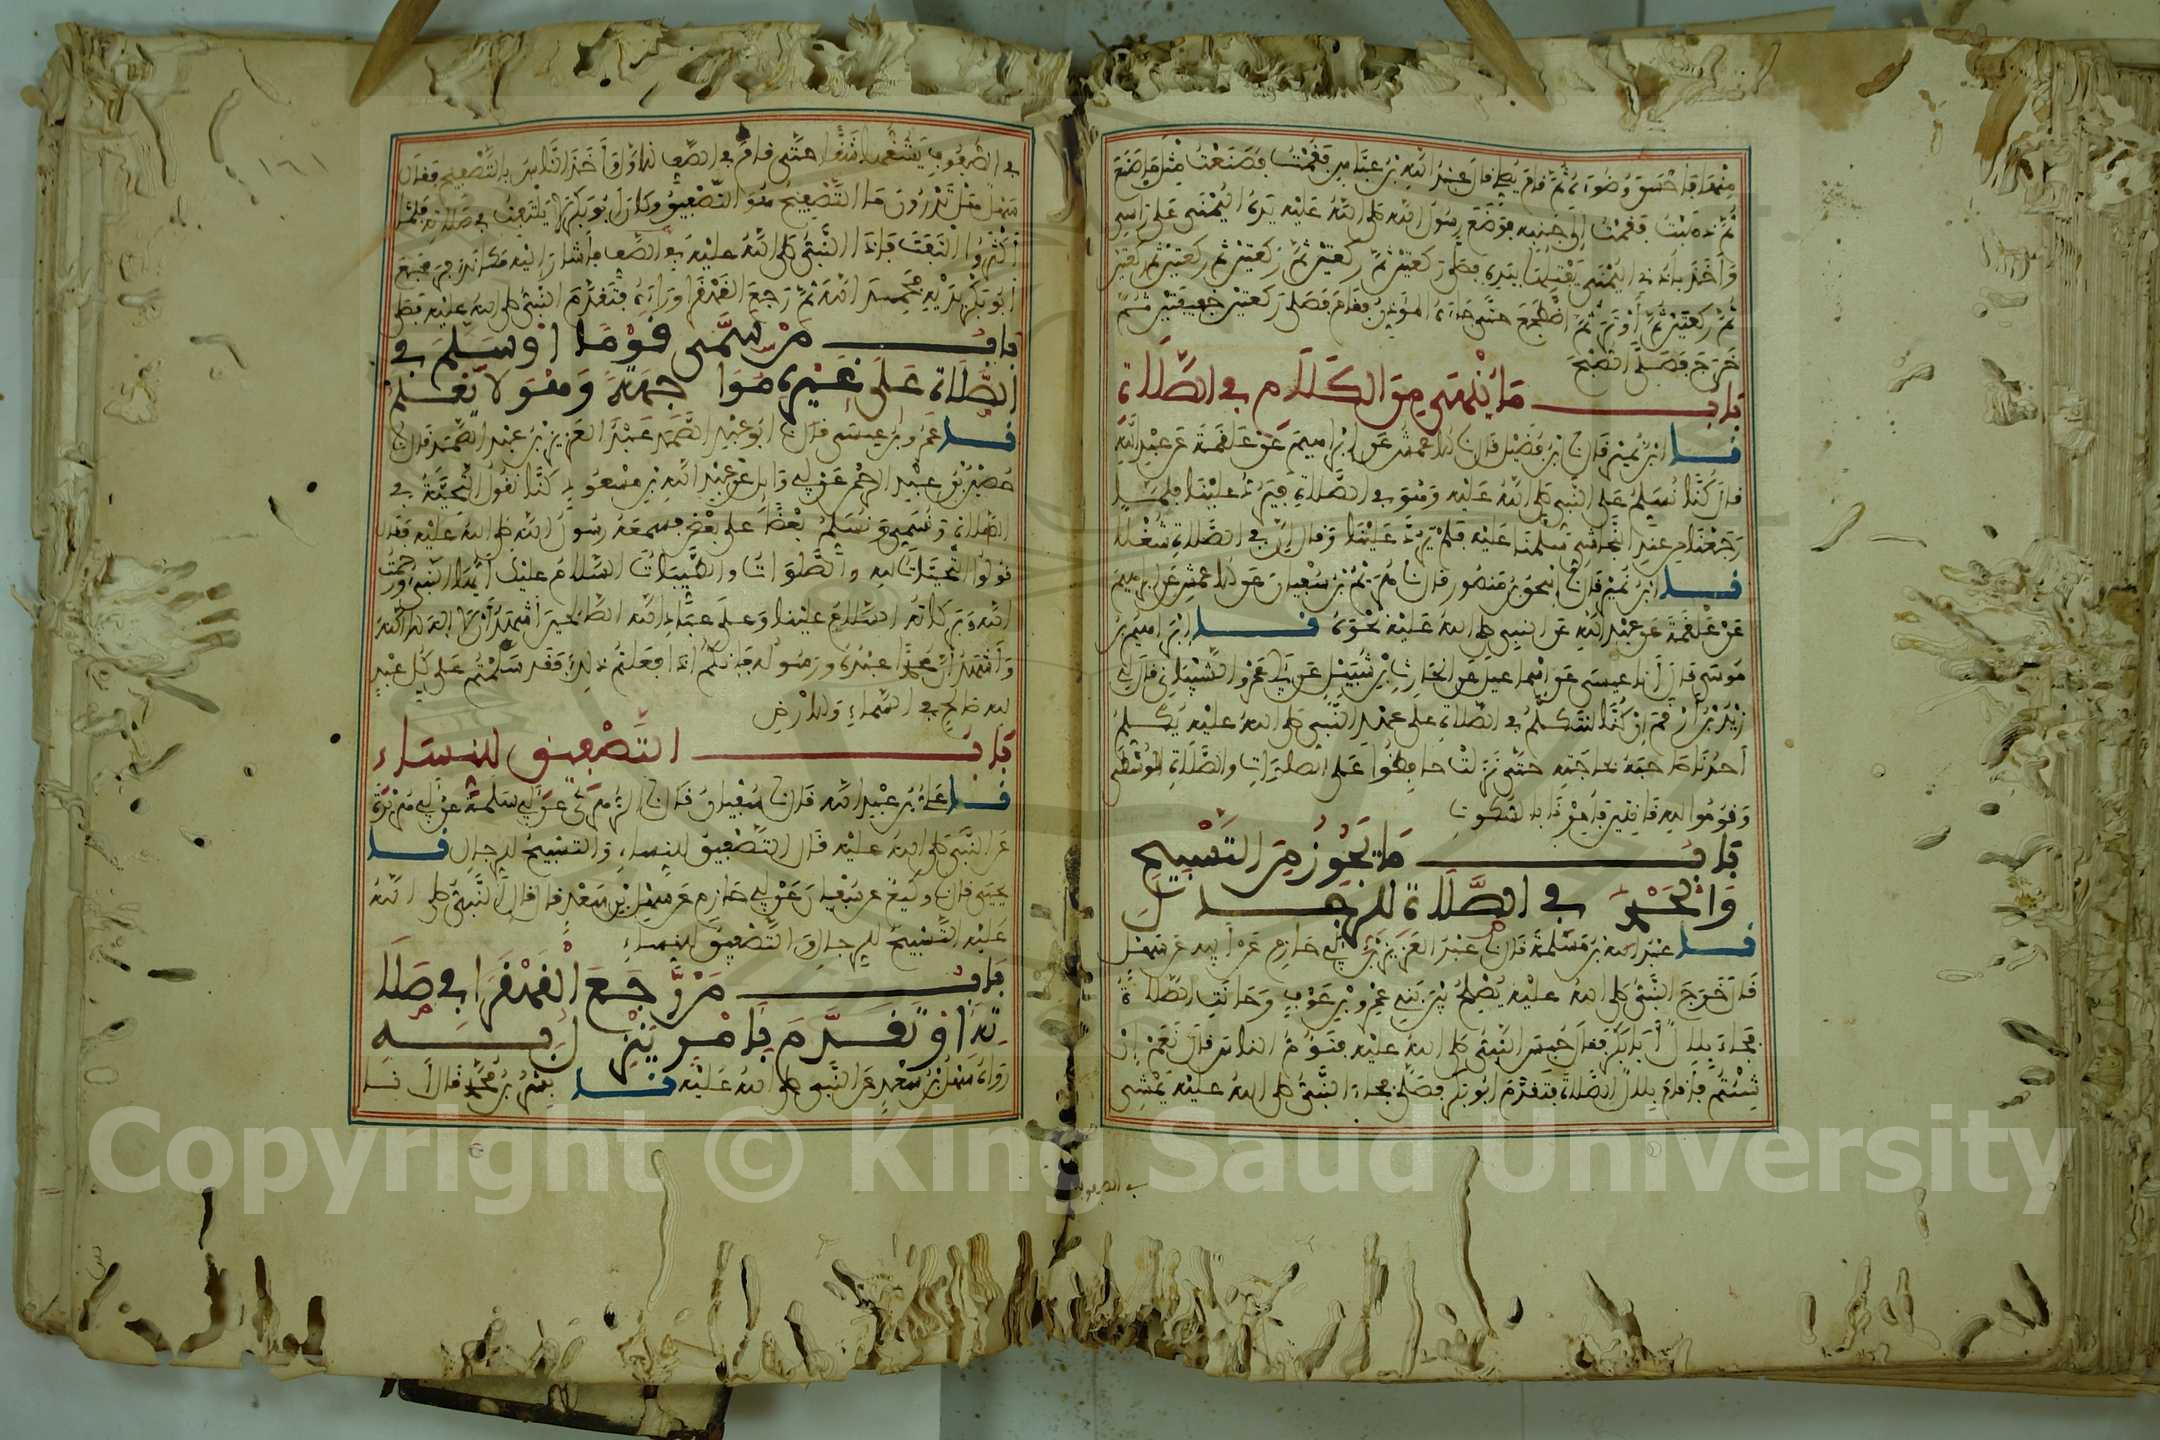 منها فاحسن وضوءه ثم قام يصلي قال عبد الله بن عباس فقمت فصنعت مثل ما صنع
ثم ذهبت فقمت إلى جنبه فوضع رسول الله صلى الله عليه يده اليمنى على راسي
وأخذ بأذني اليمنى يفتلها بيده فصلى ركعتين ثم ركعتين ثم ركعتين ثم ركعتين ثم ركعتين
ثم ركعتين ثم أوتر ثم اضطجع حتى جاءه الموذن فقام فصلى ركعتين خفيفتين ثم
خرج فصلى الصبح
باب ما ينهى من الكلام في الصلاة
نا ابن نمير قال نا ابن فضيل قال نا الاعمش عن إبراهيم عن علقمة عن عبد الله
قال كنا نسلم على النبي صلى الله عليه وهو في الصلاة فيرد علينا فلما
رجعنا من عند النجاشي سلمنا عليه فلم يرد علينا وقال إن في الصلاة شغلا
نا ابن نمير قال نا إسحق بن منصور قال نا هريم بن سفيان عن الاعمش عن ابراهيم
عن علقمة عن عبد الله عن النبي صلى الله عليه نحوه نا ابراهيم بن
موسى قال أنا عيسى عن إسماعيل عن الحارث بن شبيل عن أبي عمرو الشيباني قال لي
زيد بن أرقم إن كنا لنتكلم في الصلاة على عهد النبي صلى الله عليه يكلم
أحدنا صاحبه بحاجته حتى نزلت حافظوا على الصلوات والصلاة الوسطى
وقوموا لله قانتين فأمرنا بالسكوت
باب ما يجوز من التسبيح
والحمد في الصلاة للرجال
نا عبد الله بن مسلمة قال نا عبد العزيز بن أبي حازم عن أبيه عن سهل
قال خرج النبي صلى الله عليه يصلح بين بني عمرو بن عوف وحانت الصلاة
فجاء بلال أبا بكر فقال حبس النبي صلى الله عليه فتؤم الناس قال نعم إن
شئتم فأقام بلال الصلاة فتقدم ابو بكر فصلى فجاء النبي صلى الله عليه يمشي
في الصفوف
في الصفوف يشقها شقا حتى قام في الصف الاول وأخذ الناس بالتصفيح فقال
سهل هل تدرون ما التصفيح هو التصفيق وكان أبو بكر لا يلتفت في صلاته فلما
أكثروا التفت فإذا النبي صلى الله عليه في الصف فأشار إليه مكانك فرفع
أبو بكر يديه فحمد الله ثم رجع القهقرا وراءه فتقدم النبي صلى الله عليه فصلى
باب من سمى قوما او سلم في
الصلاة على غيره مواجهة وهو لا يعلم
نا عمرو بن عيسى قال نا ابو عبد الصمد عبد العزيز بن عبد الصمد قال نا
حصين بن عبد الرحمن عن أبي وايل عن عبد الله بن مسعود كنا نقول التحية في
الصلاة ونسمي ونسلم بعضنا على بعض فسمعه رسول الله صلى الله عليه فقال
قولوا التحيات لله والصلوات والطيبات السلام عليك أيها النبي ورحمت
الله وبركاته السلام علينا وعلى عباد الله الصالحين أشهد أن لا إله الا الله
وأشهد أن محمدا عبده ورسوله فإنكم إذا فعلتم ذلك فقد سلمتم على كل عبد
لله صالح في السماء والارض
باب التصفيق للنساء
نا علي بن عبد الله قال نا سفيان قال نا الزهري عن أبي سلمة عن أبي هريرة
عن النبي صلى الله عليه قال التصفيق للنساء والتسبيح للرجال نا
يحيى قال نا وكيع عن سفيان عن أبي حازم عن سهل بن سعد قال قال النبي صلى الله
عليه التسبيح للرجال والتصفيق للنساء
باب من رجع القهقرا في صلا
ته أو تقدم بأمر ينزل به
رواه سهل بن سعد عن النبي صلى الله عليه نا بشر بن محمد قال أنا
Copyright © King Saud University